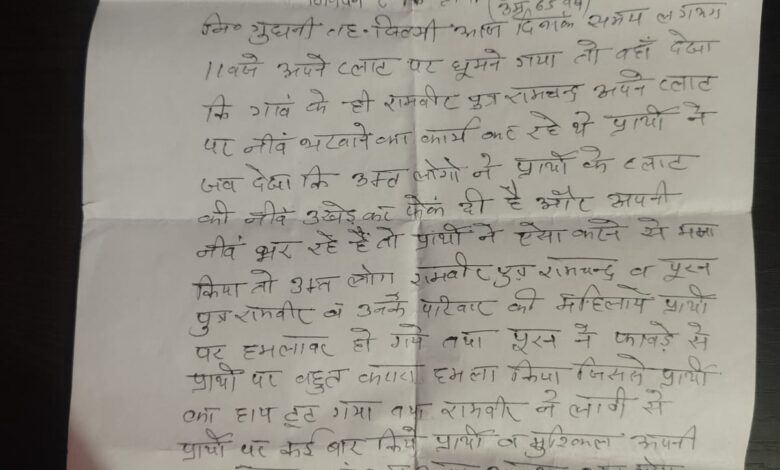 (उम्र 65 वर्ष)
नि० गुधनी तह. बिल्सी आज दिनांक समय लगभग
11 बजे अपने प्लाट पर घूमने गया तो वहाँ देखा
कि गावं के ही रामवीर पुत्र रामचन्द्र अपने प्लाट
पर नीवं भरवाने का कार्य कर रहे थे प्रार्थी ने
जब देखा कि उक्त लोगो ने प्रार्थी के प्लाट
की नीवं उखेड़ कर फेंक दी है और अपनी
नीवं भर रहे हैं तो प्रार्थी ने ऐसा करने से मना
किया तो उक्त लोग रामवीर पुत्र रामचन्द्र व पूरन
पुत्र रामवीर व उनके परिवार की महिलाये प्रार्थी
पर हमलावर हो गये तथा पूरन ने फावड़े से
प्रार्थी पर बहुत करारा हमला किया जिससे प्रार्थी
का हाथ टूट गया तथा रामवीर ने लाठी से
प्रार्थी पर कई बार किये प्रार्थी व मुश्किल अपनी